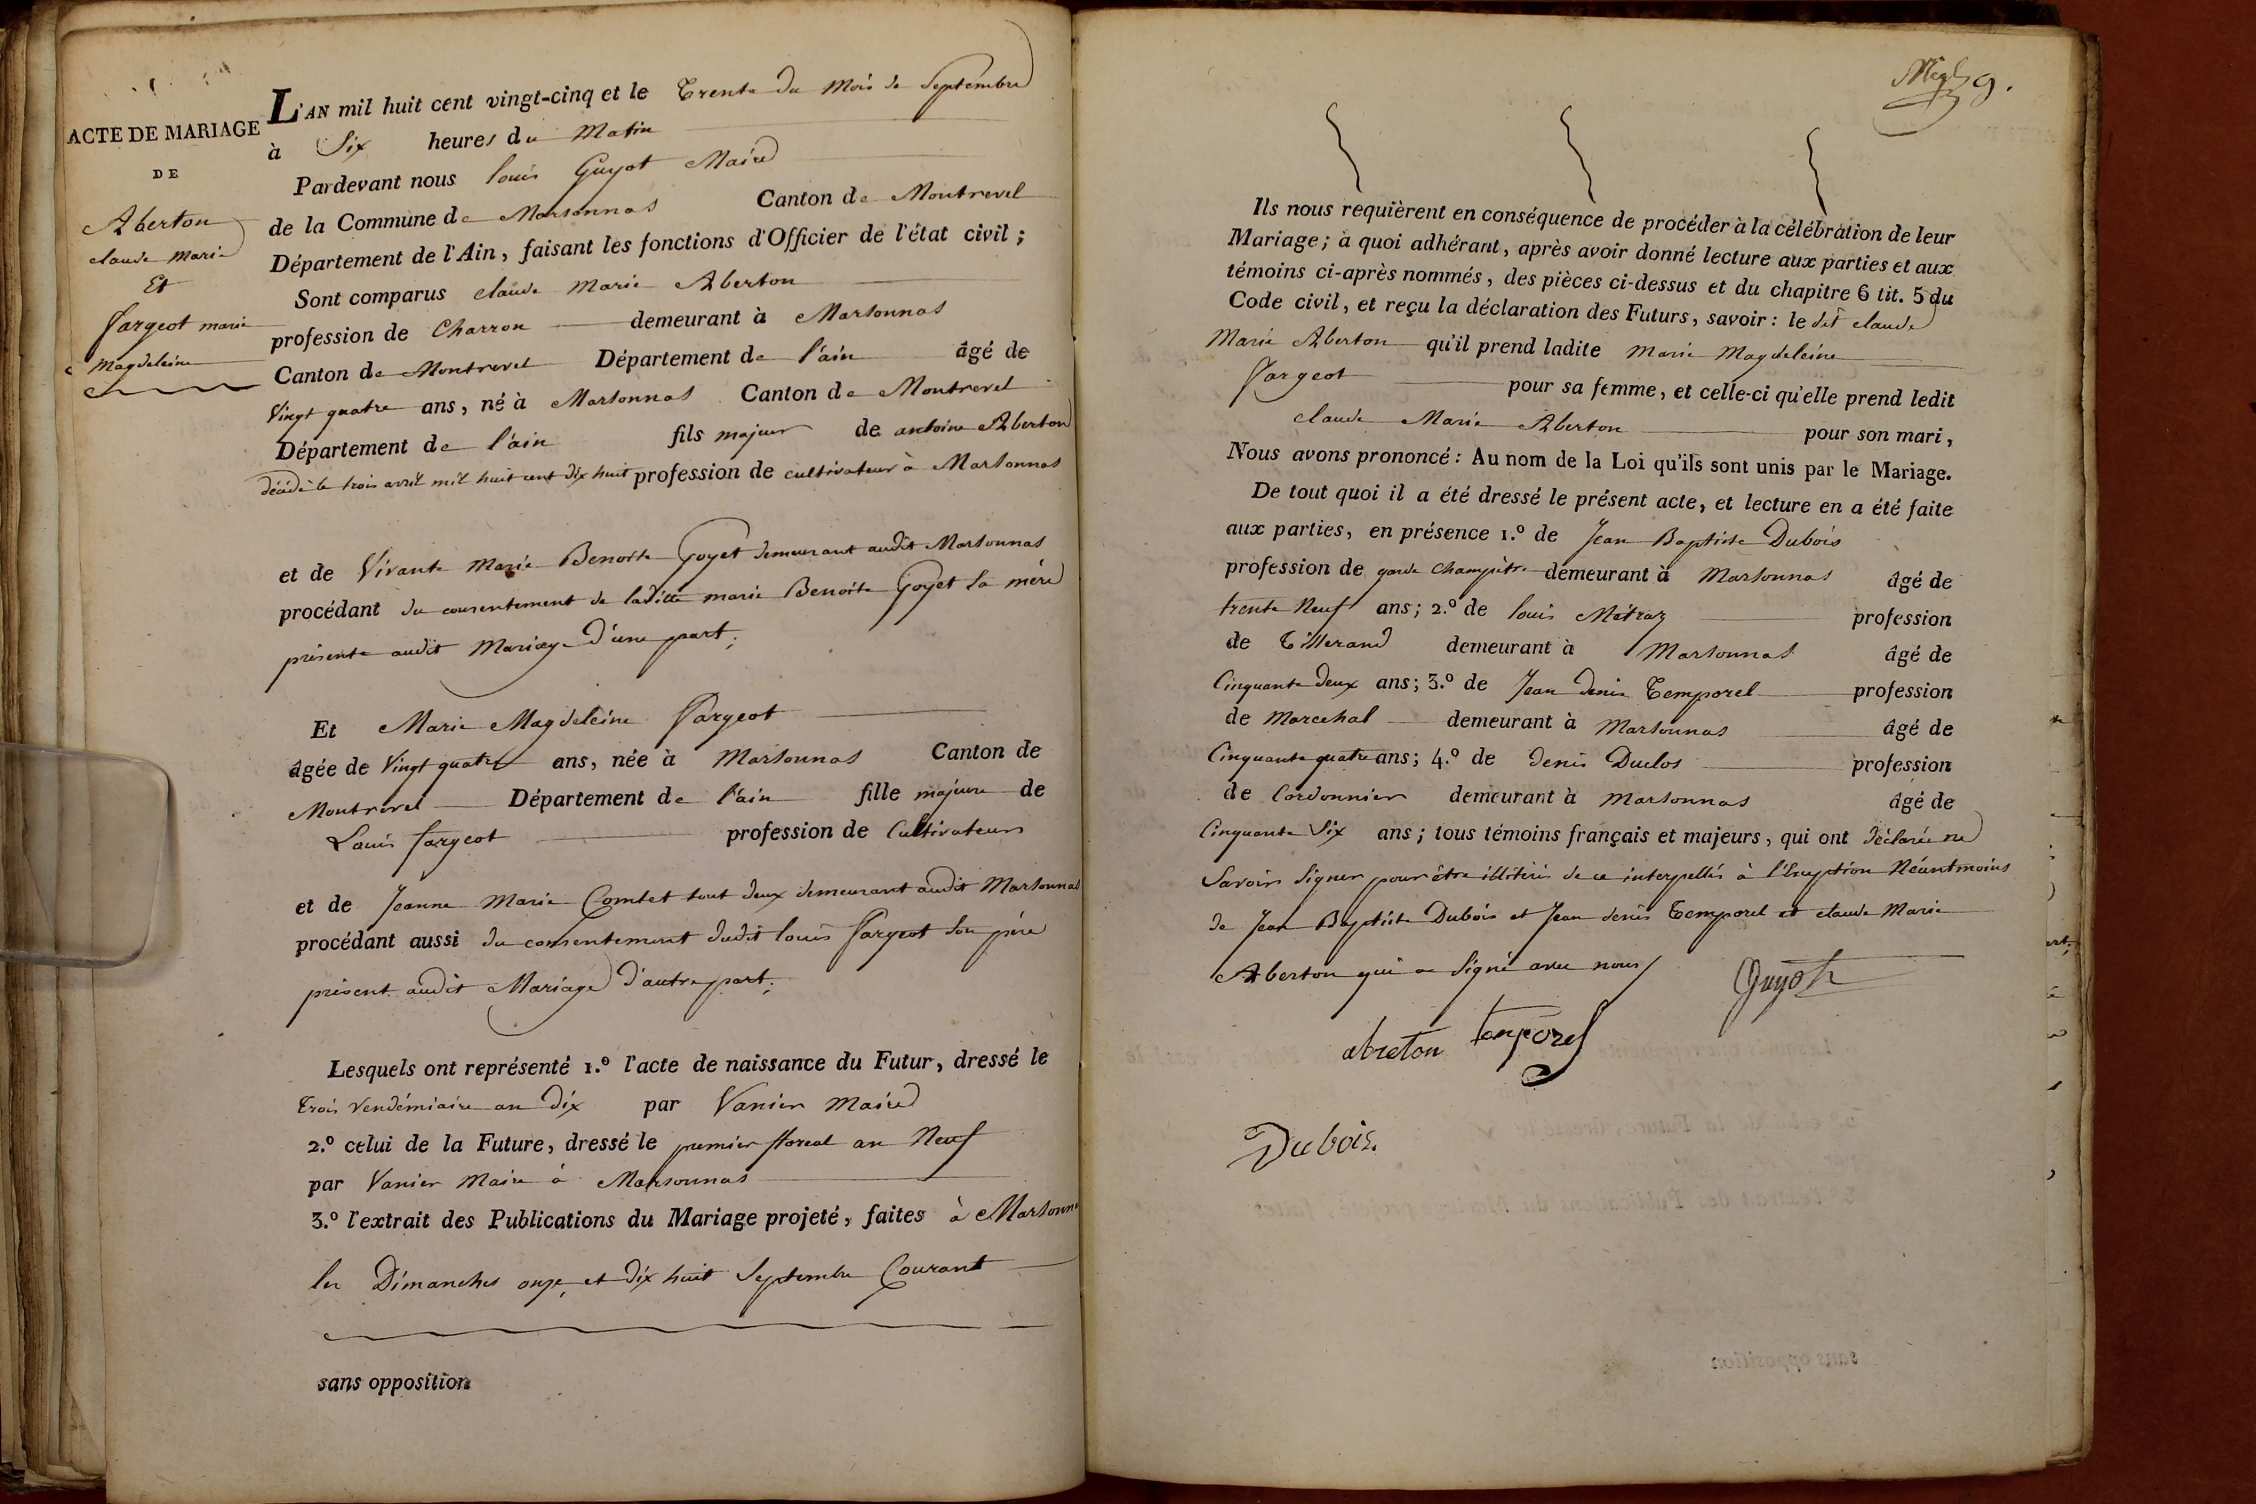 ACTE DE MARIAGE
DE
Aberton
claude marie
Et
fargeot marie
magdeleine
L'AN mil huit cent vingt-cinq et le Trente du Mois de Septembre
à Six heures du Matin
Pardevant nous louis Guyot Maire
de la Commune de Marsonnas Canton de Montrevel
Département de l'Ain, faisant les fonctions d'Officier de l'état civil;
Sont comparus claude marie Aberton
profession de Charron demeurant à Marsonnas
Canton de Montrevel Département de l'ain âgé de
Vingt quatre ans, né à Marsonnas Canton de Montrevel
Département de l'ain fils majeur de antoine Aberton
décédé le trois avril mil huit cent dix huit profession de cultivateur à Marsonnas
et de Vivante Marie Benoite Goyet demeurant audit Marsonnas
procédant du consentement de laditte marie Benoite Goyet Sa mère
présente audit Mariage d'une part;
Et Marie Magdeleine fargeot
âgée de Vingt quatre ans, née à Marsonnas Canton de
Montrevel Département de l'ain fille majeure de
Louis fargeot profession de Cultivateur
et de Jeanne Marie Comtet tout deux demeurant audit Marsonnas
procédant aussi du consentement dudit louis fargeot Son père
présent audit Mariage d'autre part;
Lesquels ont représenté 1.º l'acte de naissance du Futur, dressé le
trois Vendémiaire an dix par Vanier Maire
2.º celui de la Future, dressé le premier floreal an Neuf
par Vanier Maire à Marsonnas
3.º l'extrait des Publications du Mariage projeté, faites à Marsonna
les Dimanches onze, et dix huit Septembre Courant
sans opposition
9.
Ils nous requièrent en conséquence de procéder à la célébration de leur
Mariage; à quoi adhérant, après avoir donné lecture aux parties et aux
témoins ci-après nommés, des pièces ci-dessus et du chapitre 6 tit. 5 du
Code civil, et reçu la déclaration des Futurs, savoir: le dit claude
Marie Aberton qu'il prend ladite marie magdeleine
fargeot pour sa femme, et celle-ci qu'elle prend ledit
claude Marie Aberton pour son mari,
Nous avons prononcé: Au nom de la Loi qu'ils sont unis par le Mariage.
De tout quoi il a été dressé le présent acte, et lecture en a été faite
aux parties, en présence 1.º de Jean Baptiste Dubois
profession de garde champêtre demeurant à Marsonnas âgé de
trente Neuf ans; 2.º de louis Métraz profession
de Tisserand demeurant à Marsonnas âgé de
Cinquante deux ans; 3.º de Jean denis Temporel profession
de Marechal demeurant à Marsonnas âgé de
Cinquante quatre ans; 4.º de denis Duclos profession
de Cordonnier demeurant à Marsonnas âgé de
Cinquante Six ans; tous témoins français et majeurs, qui ont déclarée ne
Savoir Signer pour être illitérés de ce interpellés à l'éxeption Néantmoins
de Jean Baptiste Dubois et Jean denis Temporel et claude Marie
Aberton qui a Signé avec nous
Guyot
abreton temporel
Dubois.